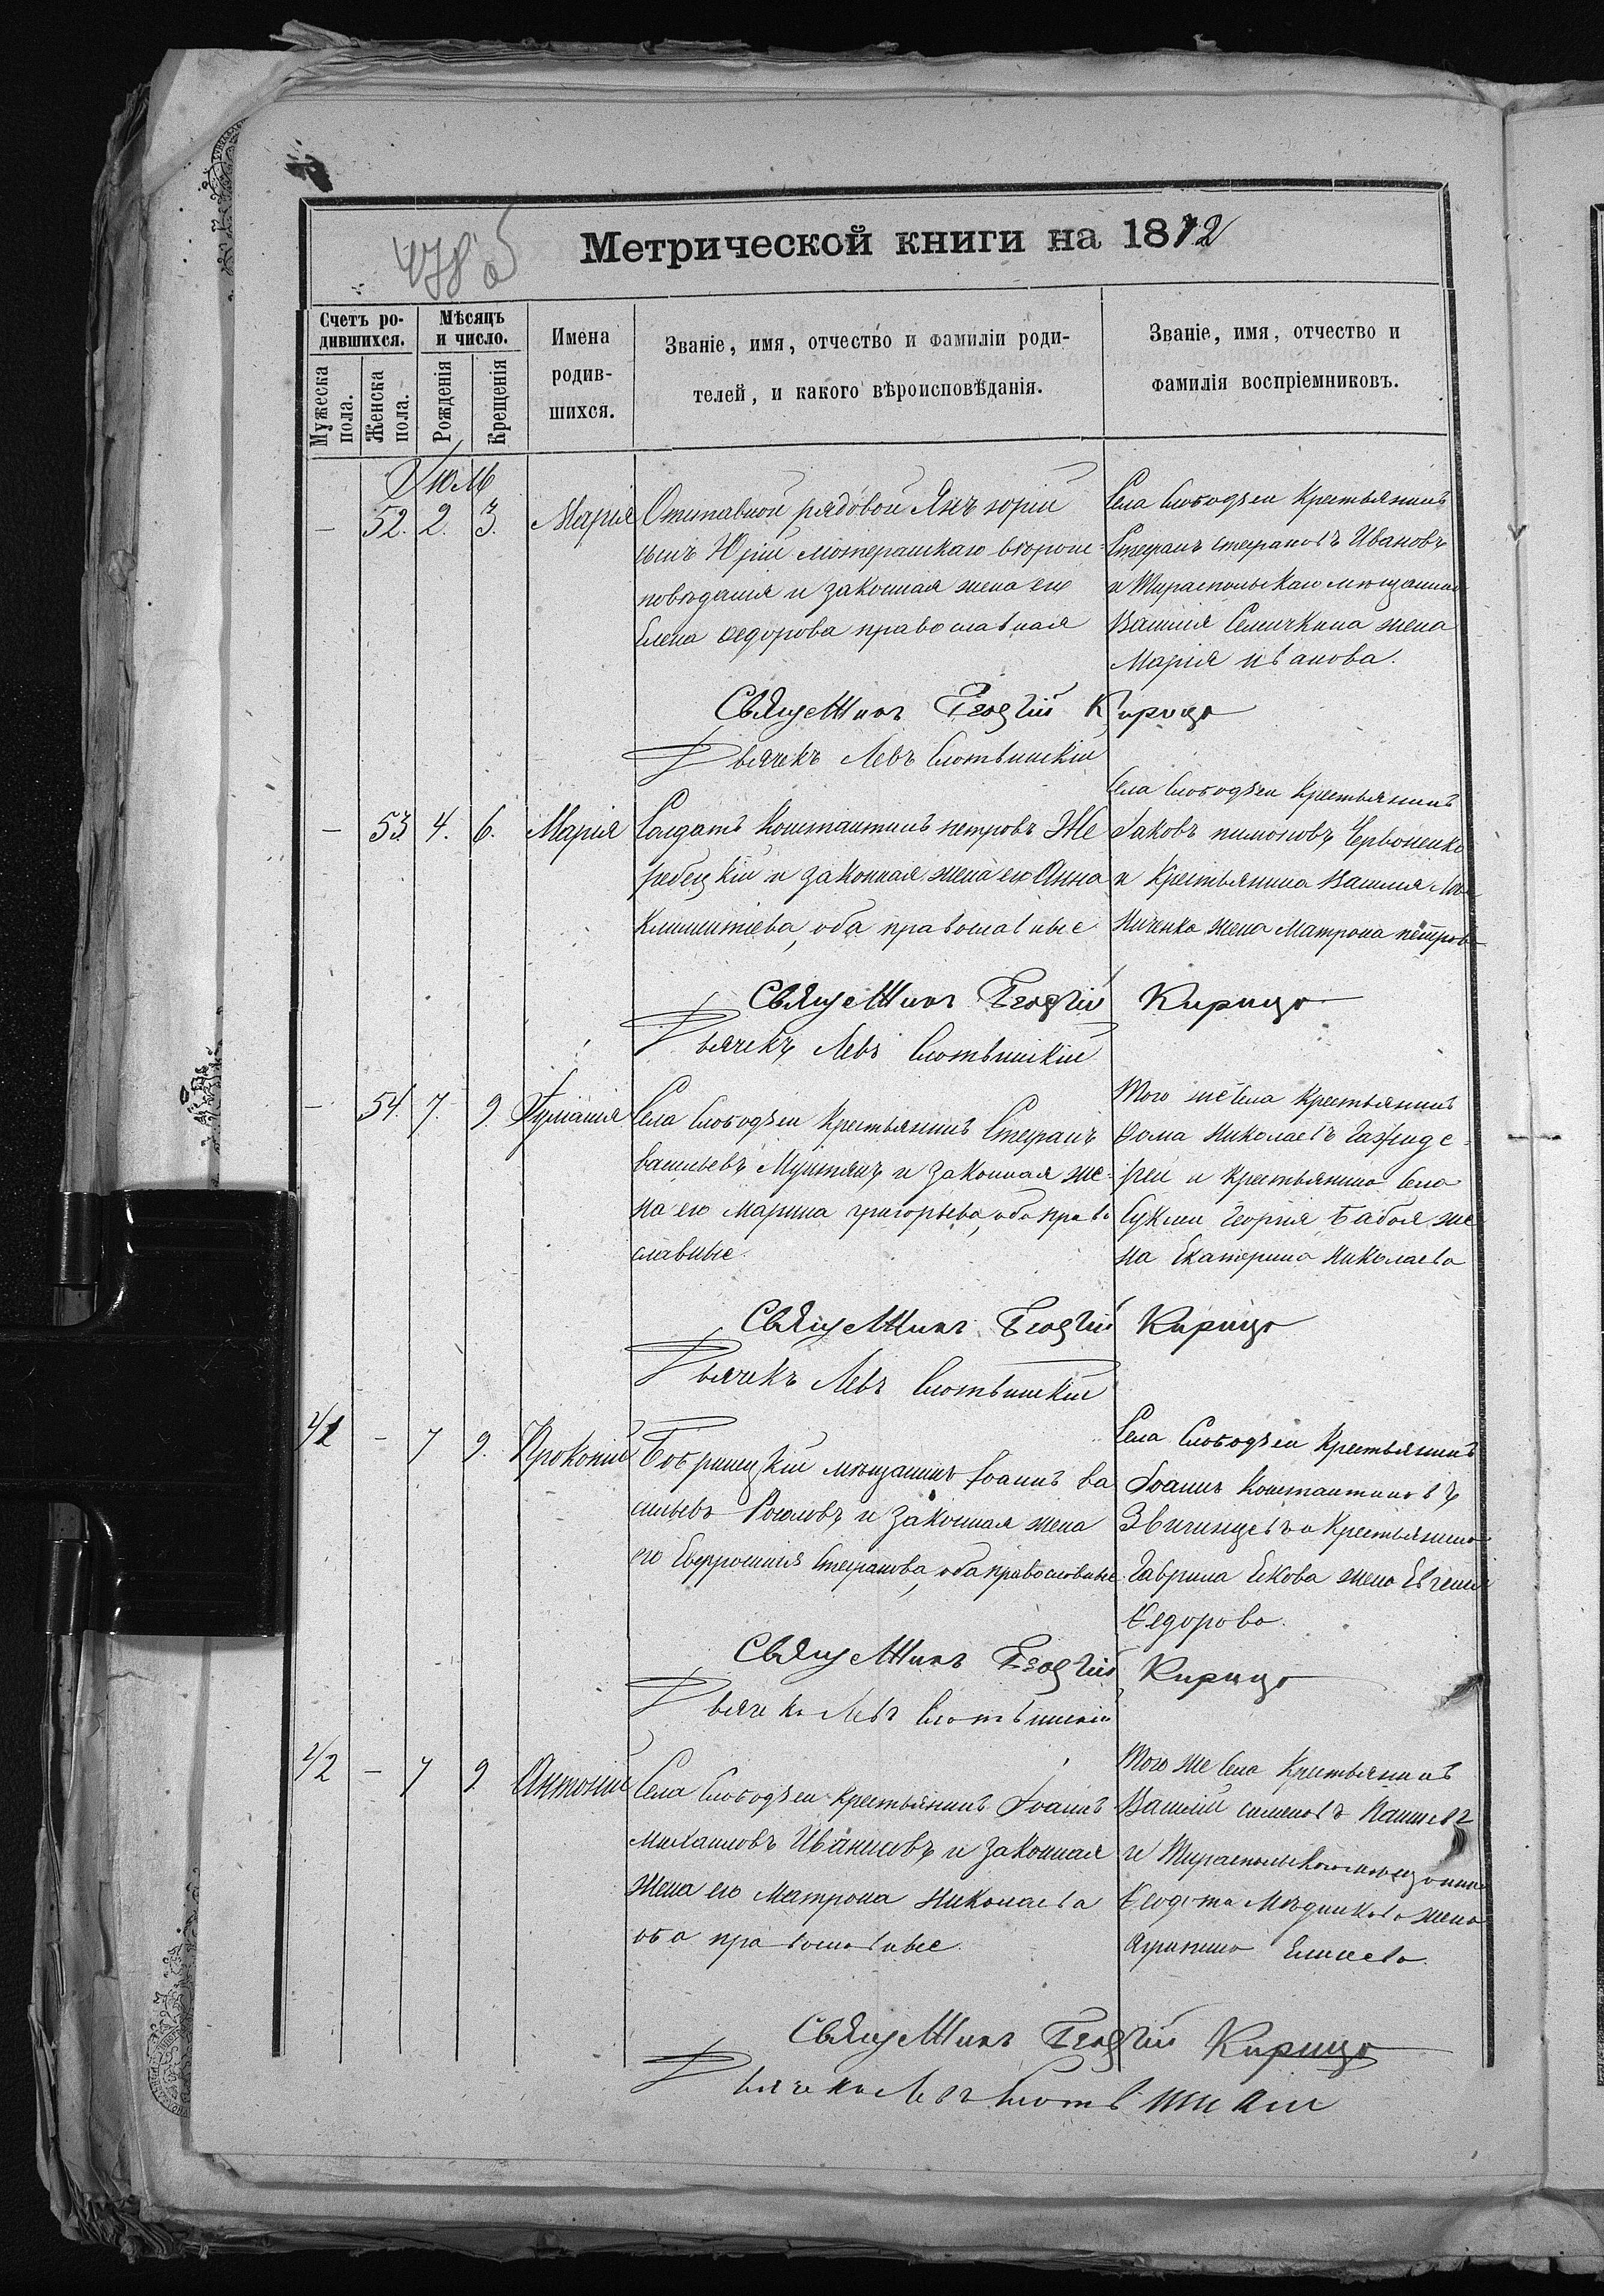 478 об
Метрической книги на 1872
Счетъ ро-
дившихся.
Мѣсяцъ
и число.
Имена
родив-
шихся.
Званіе, имя, отчество и фамиліи роди-
телей, и какого вѣроисповѣданія.
Званіе, имя, отчество и
фамилія воспріемниковъ.
Мужеска
пола.
Женска
пола.
Рожденія
Крещенія
Юль
— 52. 2. 3. Марія
Отставной рядовой Янъ юрій
сынъ Юрій лютеранскаго вѣроис-
повѣданія и законная жена его
Елена Федорова православная
Села Слободзеи крестьянинъ
Стефанъ стефановъ Ивановъ
и Тираспольскаго мѣщанина
Василія Семичкина жена
Марія иванова.
Священникъ Георгій Кирица
Дьячекъ Левъ Слотвинскій
— 53. 4. 6. Марія
Солдатъ Константинъ петровъ Же
ребецкій и законная жена его Анна
Климентіева, оба православные
Села Слободзеи крестьянинъ
Іаковъ пимоновъ Червоненко
и крестьянина Василія
ниченко жена Матрона петрова
Священникъ Георгій Кирица
Дьячекъ Левъ Слотвинскій
— 54. 7. 9. Іуліанія
Села Слободзеи крестьянинъ Стефанъ
васильевъ Мунтянъ и законная же-
на его Марина григорьева, оба право
славные.
Того же села крестьянинъ
Фома николаевъ
и крестьянина села
Суклеи Георгія Бабоя же
на Екатерина николаева
Священникъ Георгій Кирица
Дьячекъ Левъ Слотвинскій
41 — 7 9. Прокопій
Бобринецкій мѣщанинъ Іоаннъ ва
сильевъ и законная жена
его Евфросинія Стефанова, оба православные.
Села Слободзеи крестьянинъ
Іоаннъ константиновъ
Звигинцевъ и крестьянина
Гавриила Ескова жена Евгенія
Федорова.
Священникъ Георгій Кирица
Дьячекъ Левъ Слотвинскій
42 — 7 9 Антоній
Села Слободзеи крестьянинъ Іоаннъ
михаиловъ Иванисовъ и законная
жена его Матрона николаева
оба православные.
Того же села крестьянинъ
Василій симеоновъ
и Тираспольскаго мѣщанина
Феодота Мѣдникова жена
Агрипина Елисеева.
Священникъ Георгій Кирица
Дьячекъ Левъ Слотвинскій